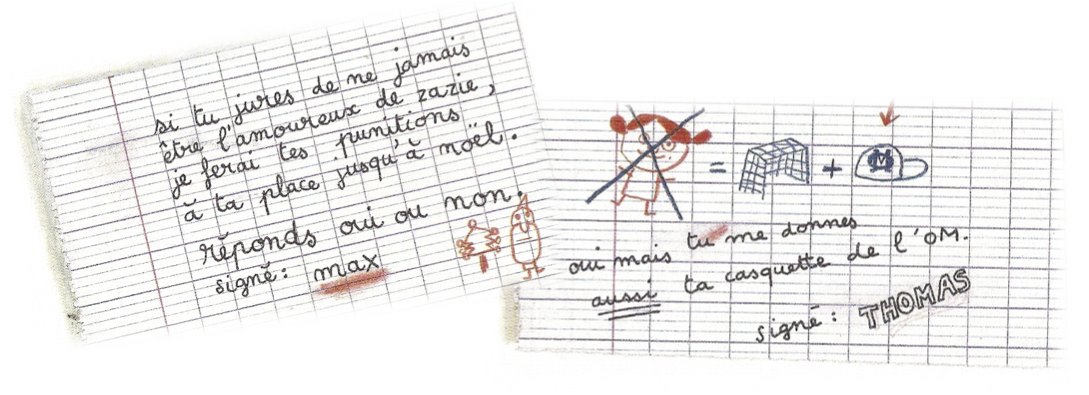 si tu jures de ne jamais
être l'amoureux de zazie,
je ferai tes punitions
à ta place jusqu'à noël.
réponds oui ou non.
signé: max
= + M
oui mais tu me donnes
aussi ta casquette de l'OM.
signé: THOMAS